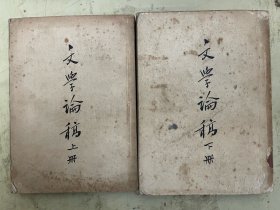 文学論稿
上册
文学論稿
下册